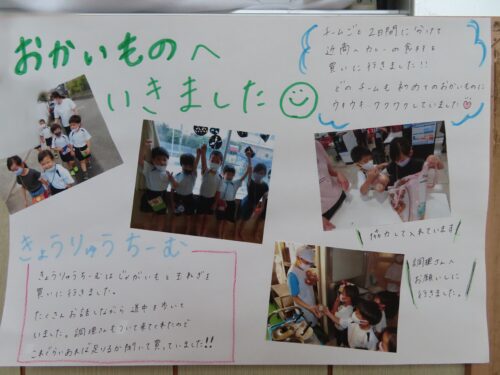 おかいものへ
いきました
チームごと2日間に分けて
近商へカレーの食材を
買いに行きました!!
どのチームも初めてのおかいものに
ウキウキ・ワクワクしていました
協力して入れています
調理さんへ
お願いしに
行きました。
きょうりゅうちーむ
きょうりゅうちーむはじゃがいもと玉ねぎを
買いに行きました。
たくさんお話しながら道中も歩いて
いました。調理さんもついて来てくれたので
これぐらいあれば足りるか聞いて買っていました!!